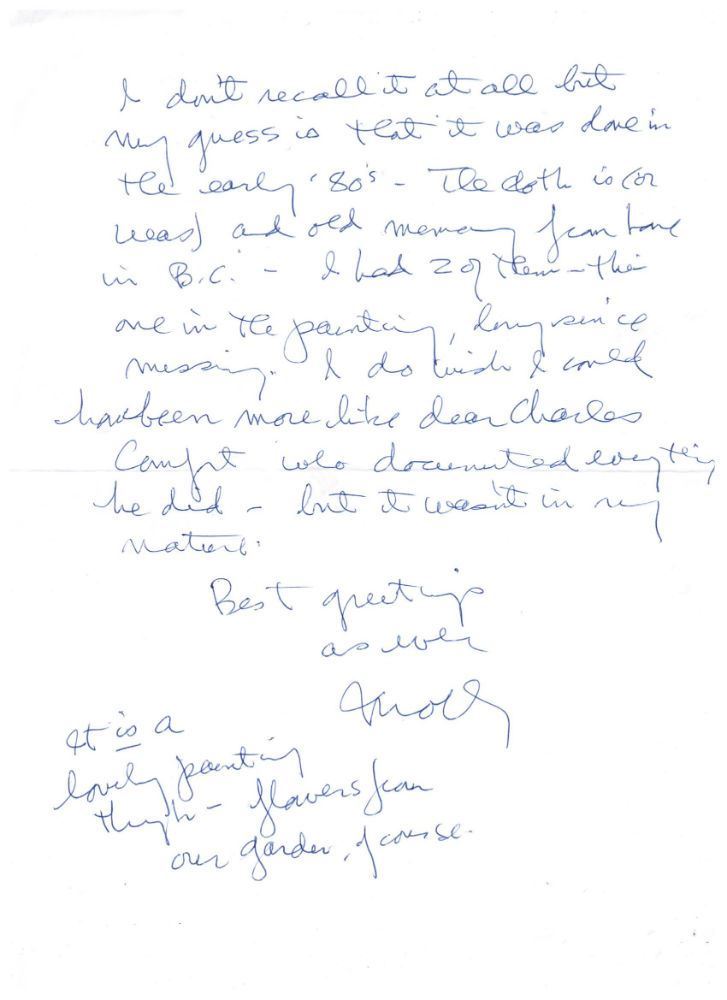 I don't recall it at all but
my guess is that it was done in
the early '80's - The cloth is (or
was) and old memory from home
in B.C. - I had 2 of them - the
one in the painting, long since
missing. I do wish I could
have been more like dear Charles
Comfort who documented everything
he did - but it wasn't in my
nature.
Best greetings
as ever
Molly
It is a
lovely painting
though - flowers from
our garden, of course.